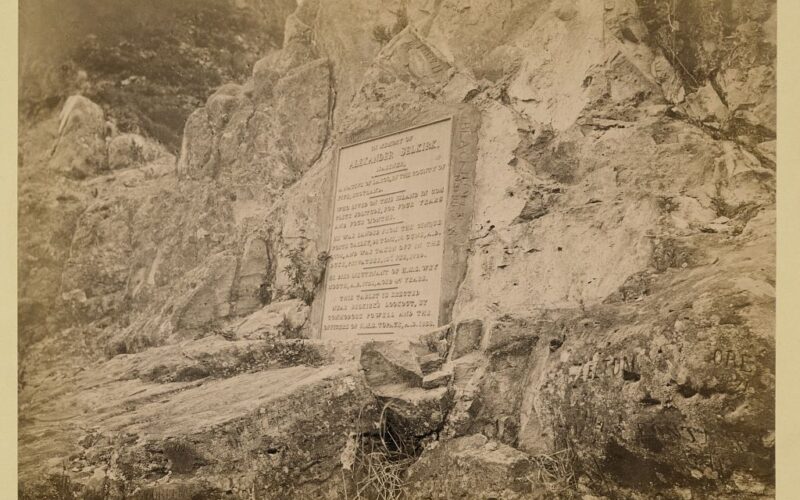 IN MEMORY OF
ALEXANDER SELKIRK,
MARINER,
A NATIVE OF LARGO, IN THE COUNTY OF
FIFE, SCOTLAND.
WHO LIVED ON THIS ISLAND IN COM
PLETE SOLITUDE, FOR FOUR YEARS
AND FOUR MONTHS.
HE WAS LANDED FROM THE CINQUE
PORTS GALLEY, 96 TONS, 16 GUNS, A.D.
AND WAS TAKEN OFF IN THE
PRIVATEER, 12TH FEB, 1709.
LIEUTENANT OF H.M.S. WEY
MOUTH, A.D. AGED 47 YEARS.
THIS TABLET IS ERECTED
NEAR SELKIRK'S LOOKOUT, BY
COMMODORE POWELL AND THE
OFFICERS OF H.M.S. TOPAZE, A.D. 1868.